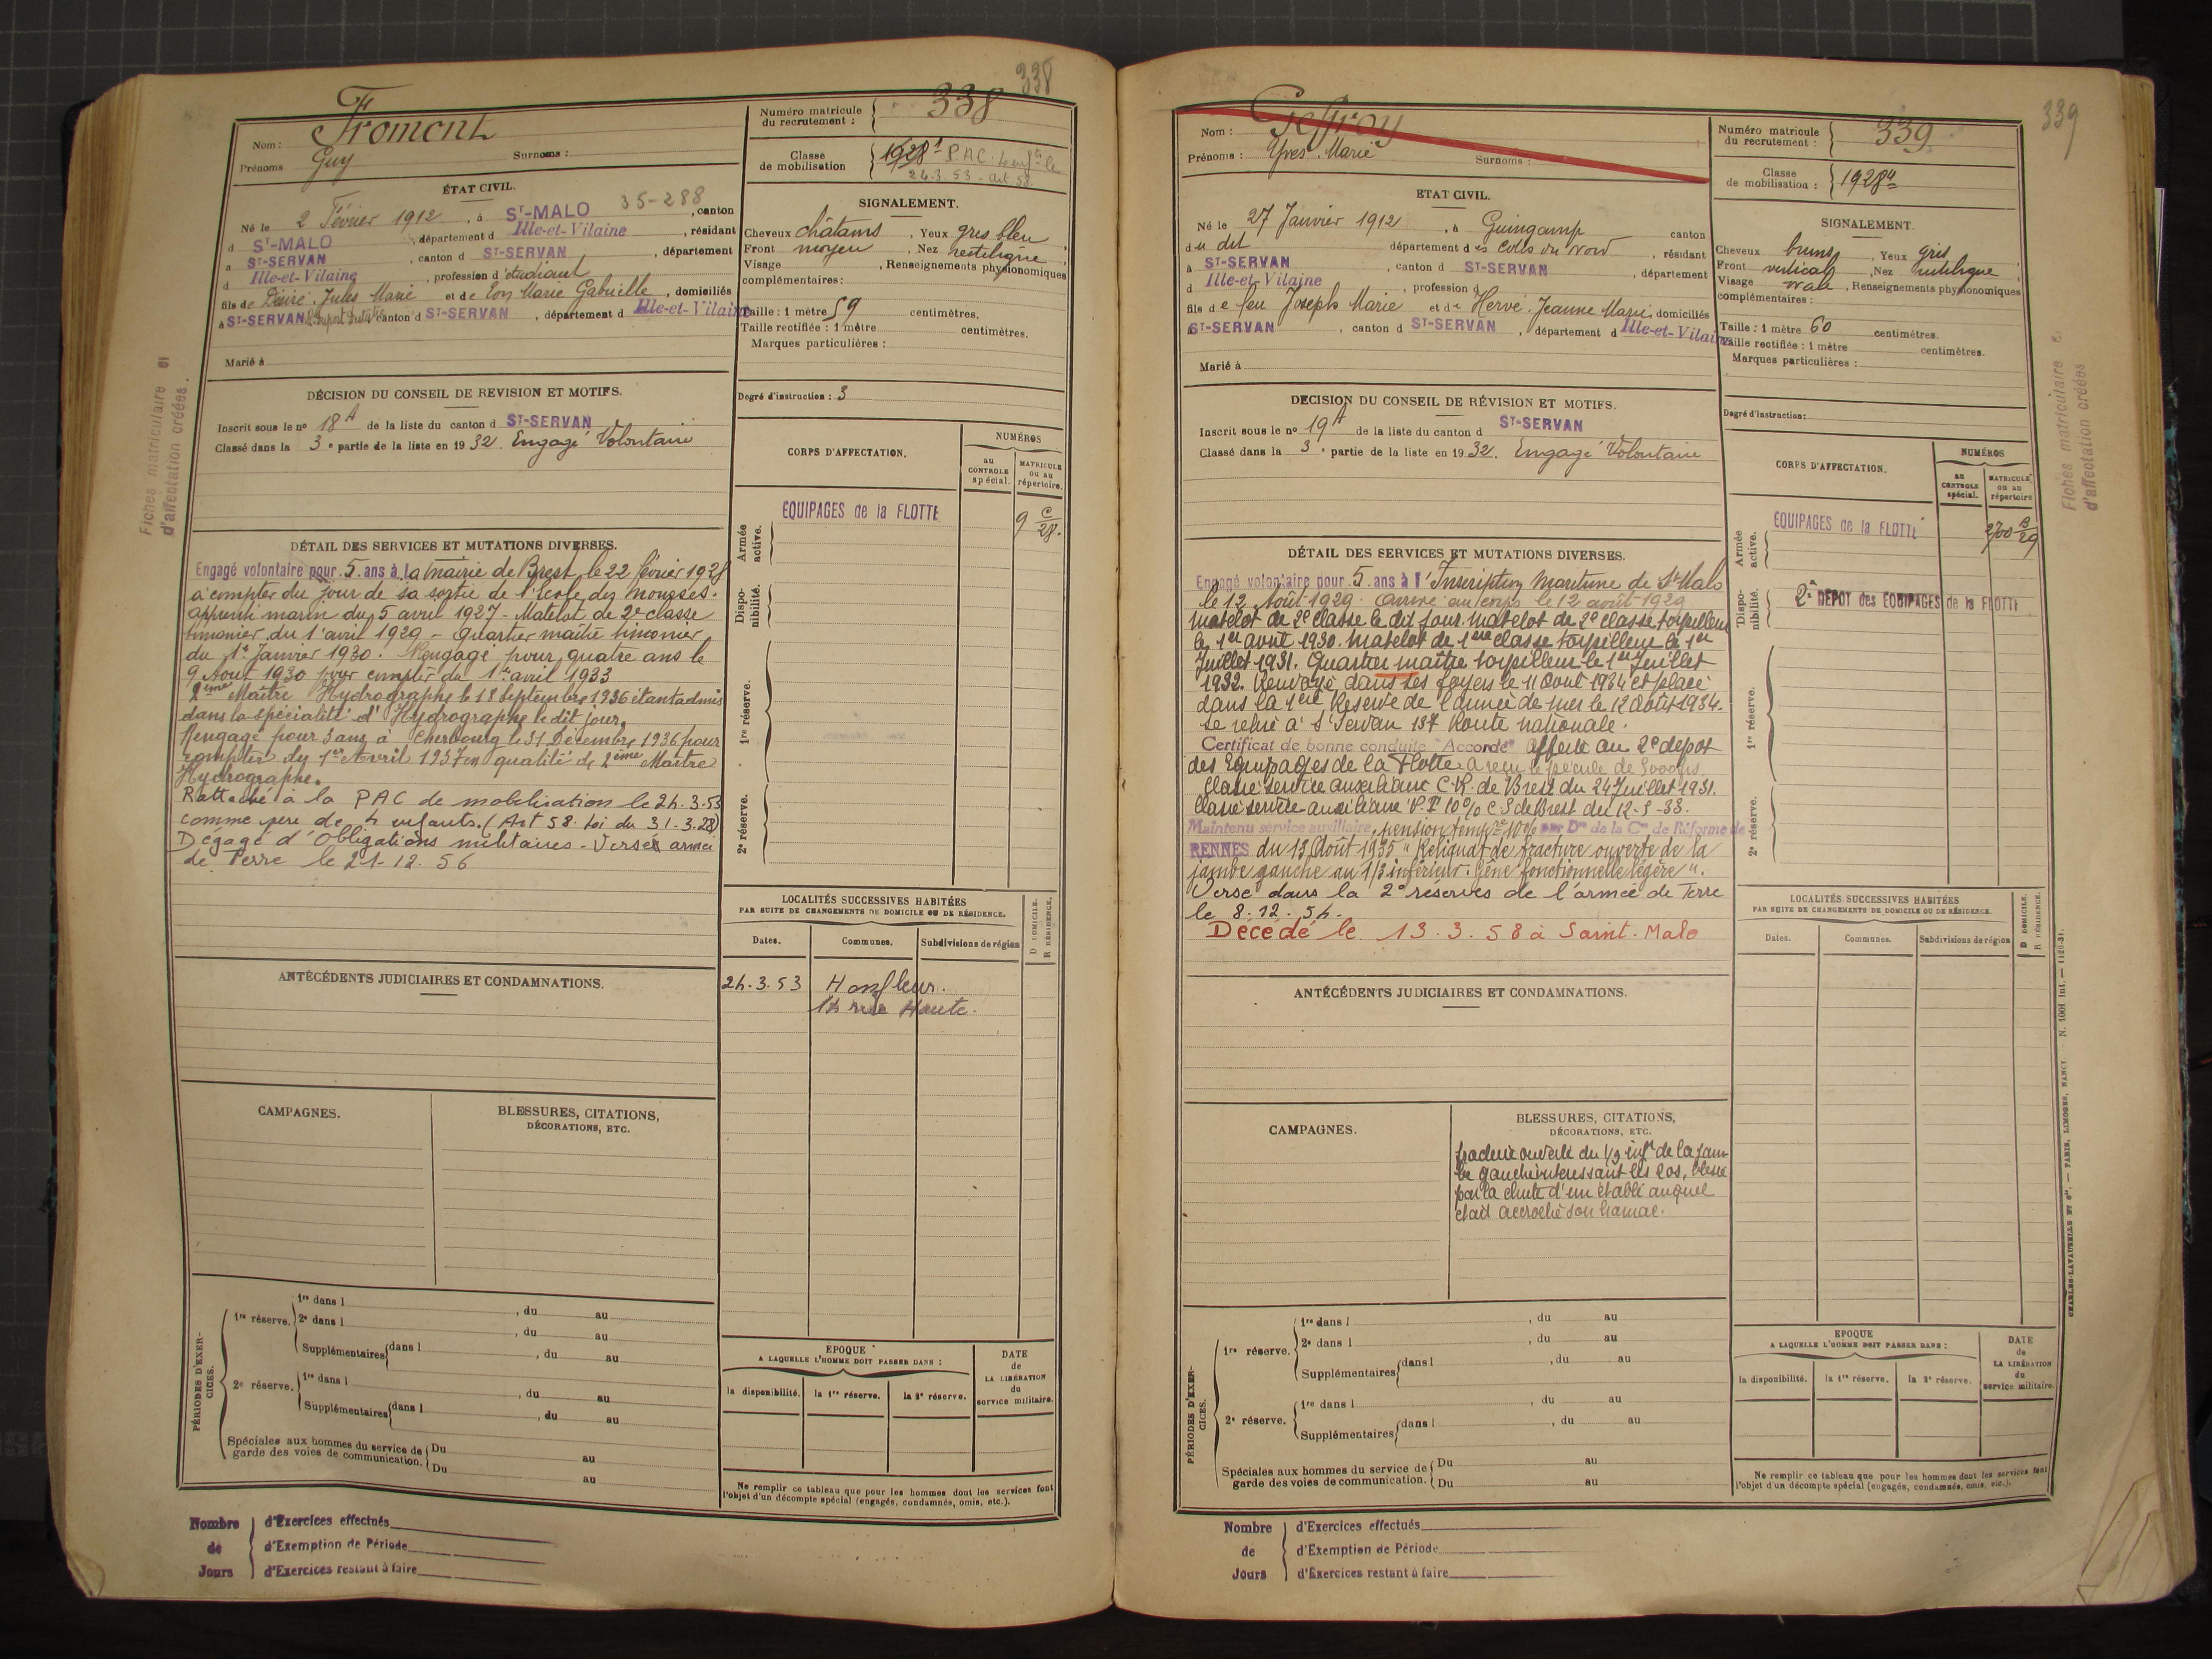 338
Nom : Froment
Prénoms Guy Surnoms :
Numéro matricule
du recrutement : 338
Classe
de mobilisation 1928 P.A.C. 4 enfts le
24.3.53 - art 58.
ÉTAT CIVIL.
35-288
Né le 2 Février 1912, à ST-MALO, canton
d ST-MALO, département d Ille-et-Vilaine, résidant
à ST-SERVAN, canton d ST-SERVAN, département
d Ille-et-Vilaine, profession d'étudiant
fils de Désiré Jules Marie et de Eon Marie Gabrielle, domiciliés
à ST-SERVAN, canton d ST-SERVAN, département d Ille-et-Vilaine
Marié à
SIGNALEMENT.
Cheveux châtains, Yeux gris bleu,
Front moyen, Nez rectiligne,
Visage, Renseignements physionomiques
complémentaires :
Taille : 1 mètre 59 centimètres.
Taille rectifiée : 1 mètre centimètres.
Marques particulières :
Degré d'instruction : 3
DÉCISION DU CONSEIL DE REVISION ET MOTIFS.
Inscrit sous le nº 18 A de la liste du canton d ST-SERVAN
Classé dans la 3e partie de la liste en 1932. Engagé Volontaire
CORPS D'AFFECTATION.
NUMÉROS
au
CONTROLE
spécial.
MATRICULE
ou au
répertoire.
Armée
active.
EQUIPAGES de la FLOTTE
9 C/28.
Dispo-
nibilité.
1re réserve.
2e réserve.
Fiches matriculaire et
d'affectation créées.
DÉTAIL DES SERVICES ET MUTATIONS DIVERSES.
Engagé volontaire pour 5 ans à la mairie de Brest le 22 février 1928
à compter du jour de sa sortie de l'école des mousses.
apprenti marin du 5 avril 1927 - Matelot de 2e classe
timonier du 1 avril 1929 - Quartier maître timonier
du 1er Janvier 1930. Rengagé pour quatre ans le
9 Aout 1930 pour compter du 1er avril 1933
2ème Maître Hydrographe le 18 Septembre 1936 étant admis
dans la spécialité d'Hydrographe le dit jour.
Rengagé pour 3 ans à Cherbourg le 31 Décembre 1936 pour
compter du 1er Avril 1937 en qualité de 2ème Maître
Hydrographe.
Rattaché à la PAC de mobilisation le 24.3.53
comme père de 4 enfants. (Art 58. Loi du 31.3.28)
Dégagé d'Obligations militaires - Versé armée
de Terre le 21.12.56
LOCALITÉS SUCCESSIVES HABITÉES
PAR SUITE DE CHANGEMENTS DE DOMICILE OU DE RÉSIDENCE.
D DOMICILE.
R RÉSIDENCE.
Dates. Communes. Subdivisions de région
24.3.53 Honfleur.
14 rue Haute.
ANTÉCÉDENTS JUDICIAIRES ET CONDAMNATIONS.
CAMPAGNES.
BLESSURES, CITATIONS,
DÉCORATIONS, ETC.
PÉRIODES D'EXER-
CICES.
1re réserve. 1re dans l, du au
2e dans l, du au
Supplémentaires dans l, du au
2e réserve. 1re dans l, du au
Supplémentaires dans l, du au
Spéciales aux hommes du service de
garde des voies de communication. Du au
Du au
EPOQUE
A LAQUELLE L'HOMME DOIT PASSER DANS :
la disponibilité. la 1re réserve. la 2e réserve.
DATE
de
LA LIBÉRATION
du
service militaire.
Ne remplir ce tableau que pour les hommes dont les services font
l'objet d'un décompte spécial (engagés, condamnés, omis, etc.).
Nombre
de
Jours
d'Exercices effectués
d'Exemption de Période
d'Exercices restant à faire
339
Nom : Geffroy
Prénoms : Yves Marie Surnoms :
Numéro matricule
du recrutement : 339
Classe
de mobilisation : 1928
ETAT CIVIL.
Né le 27 Janvier 1912, à Guingamp canton
du dit département des Côtes du Nord, résidant
à ST-SERVAN, canton d ST-SERVAN, département
d Ille-et-Vilaine, profession d
fils de feu Joseph Marie et de Hervé Jeanne Marie, domiciliés
à ST-SERVAN, canton d ST-SERVAN, département d Ille-et-Vilaine
Marié à
SIGNALEMENT.
Cheveux bruns, Yeux gris
Front vertical, Nez rectiligne,
Visage ovale, Renseignements physionomiques
complémentaires :
Taille : 1 mètre 60 centimètres.
Taille rectifiée : 1 mètre centimètres.
Marques particulières :
Degré d'instruction :
DECISION DU CONSEIL DE RÉVISION ET MOTIFS.
Inscrit sous le nº 19 A de la liste du canton d ST-SERVAN
Classé dans la 3e partie de la liste en 1932. Engagé Volontaire
CORPS D'AFFECTATION.
NUMÉROS
au
CONTROLE
spécial.
MATRICULE
ou au
répertoire
Armée
active.
EQUIPAGES de la FLOTTE
2700 B/29
Dispo-
nibilité.
2e DEPOT des EQUIPAGES de la FLOTTE
1re réserve.
2e réserve.
Fiches matriculaire e
d'affectation créées
DÉTAIL DES SERVICES ET MUTATIONS DIVERSES.
Engagé volontaire pour 5 ans à l'Inscription Maritime de St-Malo
le 12 Août 1929. Arrivé au corps le 12 août 1929
matelot de 2e classe le dit jour. matelot de 2e classe torpilleur
le 1er avril 1930. Matelot de 1ère classe torpilleur le 1er
Juillet 1931. Quartier maître torpilleur le 1er Juillet
1932. Renvoyé dans ses foyers le 11 Août 1934 et placé
dans la 1ère Réserve de l'armée de mer le 12 Août 1934.
se retire à St Servan 137 Route nationale.
Certificat de bonne conduite "Accordé" Affecté au 2e dépôt
des Equipages de la Flotte. A reçu le pécule de
Classé service auxiliaire C.R. de Brest du 24 Juillet 1931.
Classé service auxiliaire P.T 10% C S de Brest du 12-9-33.
Maintenu service auxiliaire, pension tempre 10% par Don de la Con de Réforme de
RENNES du 13 Août 1935 "Reliquat de fracture ouverte de la
jambe gauche au 1/3 inférieur. Gêne fonctionnelle légère".
Versé dans la 2e réserves de l'armée de Terre
le 8.12.54.
Décédé le 13.3.58 à Saint-Malo
LOCALITÉS SUCCESSIVES HABITÉES
PAR SUITE DE CHANGEMENTS DE DOMICILE OU DE RÉSIDENCE.
D DOMICILE.
R RÉSIDENCE.
Dates. Communes. Subdivisions de région
ANTÉCÉDENTS JUDICIAIRES ET CONDAMNATIONS.
CAMPAGNES.
BLESSURES, CITATIONS,
DÉCORATIONS, ETC.
fracture ouverte du 1/3 infr de la jam-
be gauche intéressant les 2 os, blessé
par la chute d'un établi auquel
était accroché son hamac.
PÉRIODES D'EXER-
CICES.
1re réserve. 1re dans l, du au
2e dans l, du au
Supplémentaires dans l, du au
2e réserve. 1re dans l, du au
Supplémentaires dans l, du au
Spéciales aux hommes du service de
garde des voies de communication. Du au
Du au
EPOQUE
A LAQUELLE L'HOMME DOIT PASSER DANS :
la disponibilité. la 1re réserve. la 2e réserve.
DATE
de
LA LIBÉRATION
du
service militaire.
Ne remplir ce tableau que pour les hommes dont les services font
l'objet d'un décompte spécial (engagés, condamnés, omis, etc.).
CHARLES-LAVAUZELLE ET Cie. — PARIS, LIMOGES, NANCY N. 1001 int. — 1126-31.
Nombre
de
Jours
d'Exercices effectués
d'Exemption de Période
d'Exercices restant à faire